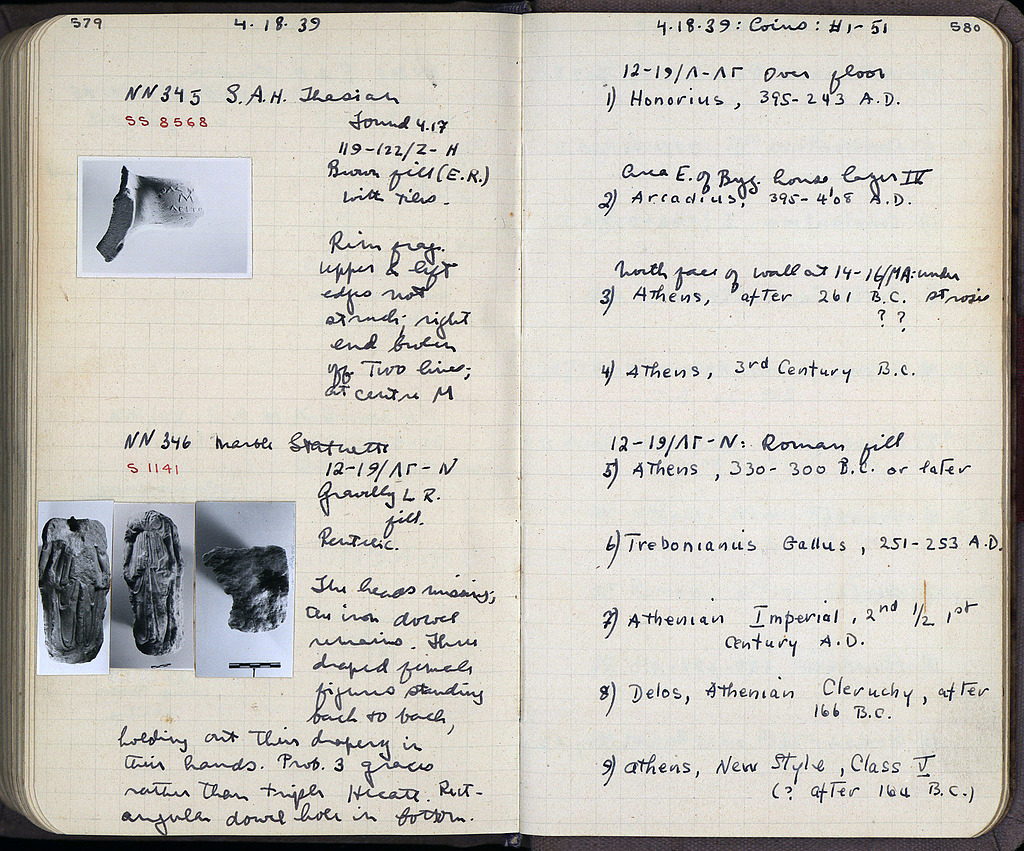 579
4.18.39
NN 345 S.A.H. Thasian
SS 8568
Found 4.17
119-122/Z-H
Brown fill (E.R.)
with tiles.
Rim frag.
upper & left
edges not
struck; right
end broken
off Two lines;
at centre M
NN 346 Marble Statuette
S 1141
12-19/ΛΓ-N
Gravilly L R.
fill.
Pentelic.
The heads missing;
iron dowel
remains. Three
draped female
figures standing
back to back,
holding out their drapery in
their hands. Prob. 3 graces
rather than triple Hecate. Rect-
angular dowel hole in bottom.
4.18.39: Coins: #1-51
580
12-19/Λ-ΛΓ Over floor
1) Honorius, 395-243 A.D.
Area E. of Byz. house layer IV
2) Arcadius, 395-408 A.D.
North face of wall at 14-16/MA: under
3) Athens, after 261 B.C. strosis
? ?
4) Athens, 3rd Century B.C.
12-19/ΛΓ-N: Roman fill
5) Athens, 330-300 B.C. or later
6) Trebonianus Gallus, 251-253 A.D.
7) Athenian Imperial, 2nd 1/2 1st
Century A.D.
8) Delos, Athenian Cleruchy, after
166 B.C.
9) Athens, New Style, Class V
(? after 164 B.C.)